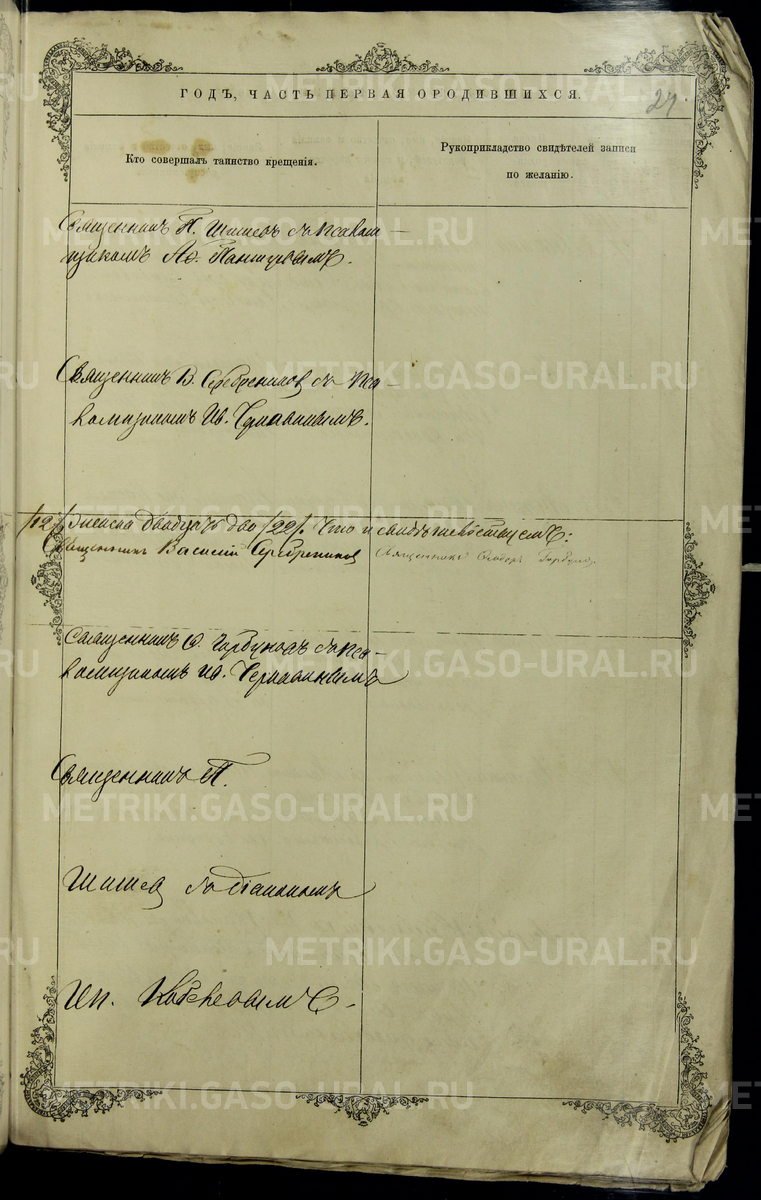 ГОДЪ, ЧАСТЬ ПЕРВАЯ О РОДИВШИХСЯ.
27.
Кто совершалъ таинство крещенія.
Рукоприкладство свидѣтелей записи
по желанію.
Священникъ П. Шишевъ съ псалом
щикомъ Ав.
Священникъ В. Серебрениковъ съ пса
ломщикомъ Ив. Чернавинымъ.
/12/ женска двадцать два /22/. Что и свидѣтельствуемъ:
Священникъ Василій Серебрениковъ
Священникъ Ѳеодоръ Горбуновъ
Священникъ Ѳ. Горбуновъ съ пса
ломщикомъ Ив. Чернавинымъ
Священникъ П.
Шишев съ діакономъ
Ип.
METRIKI.GASO-URAL.RU